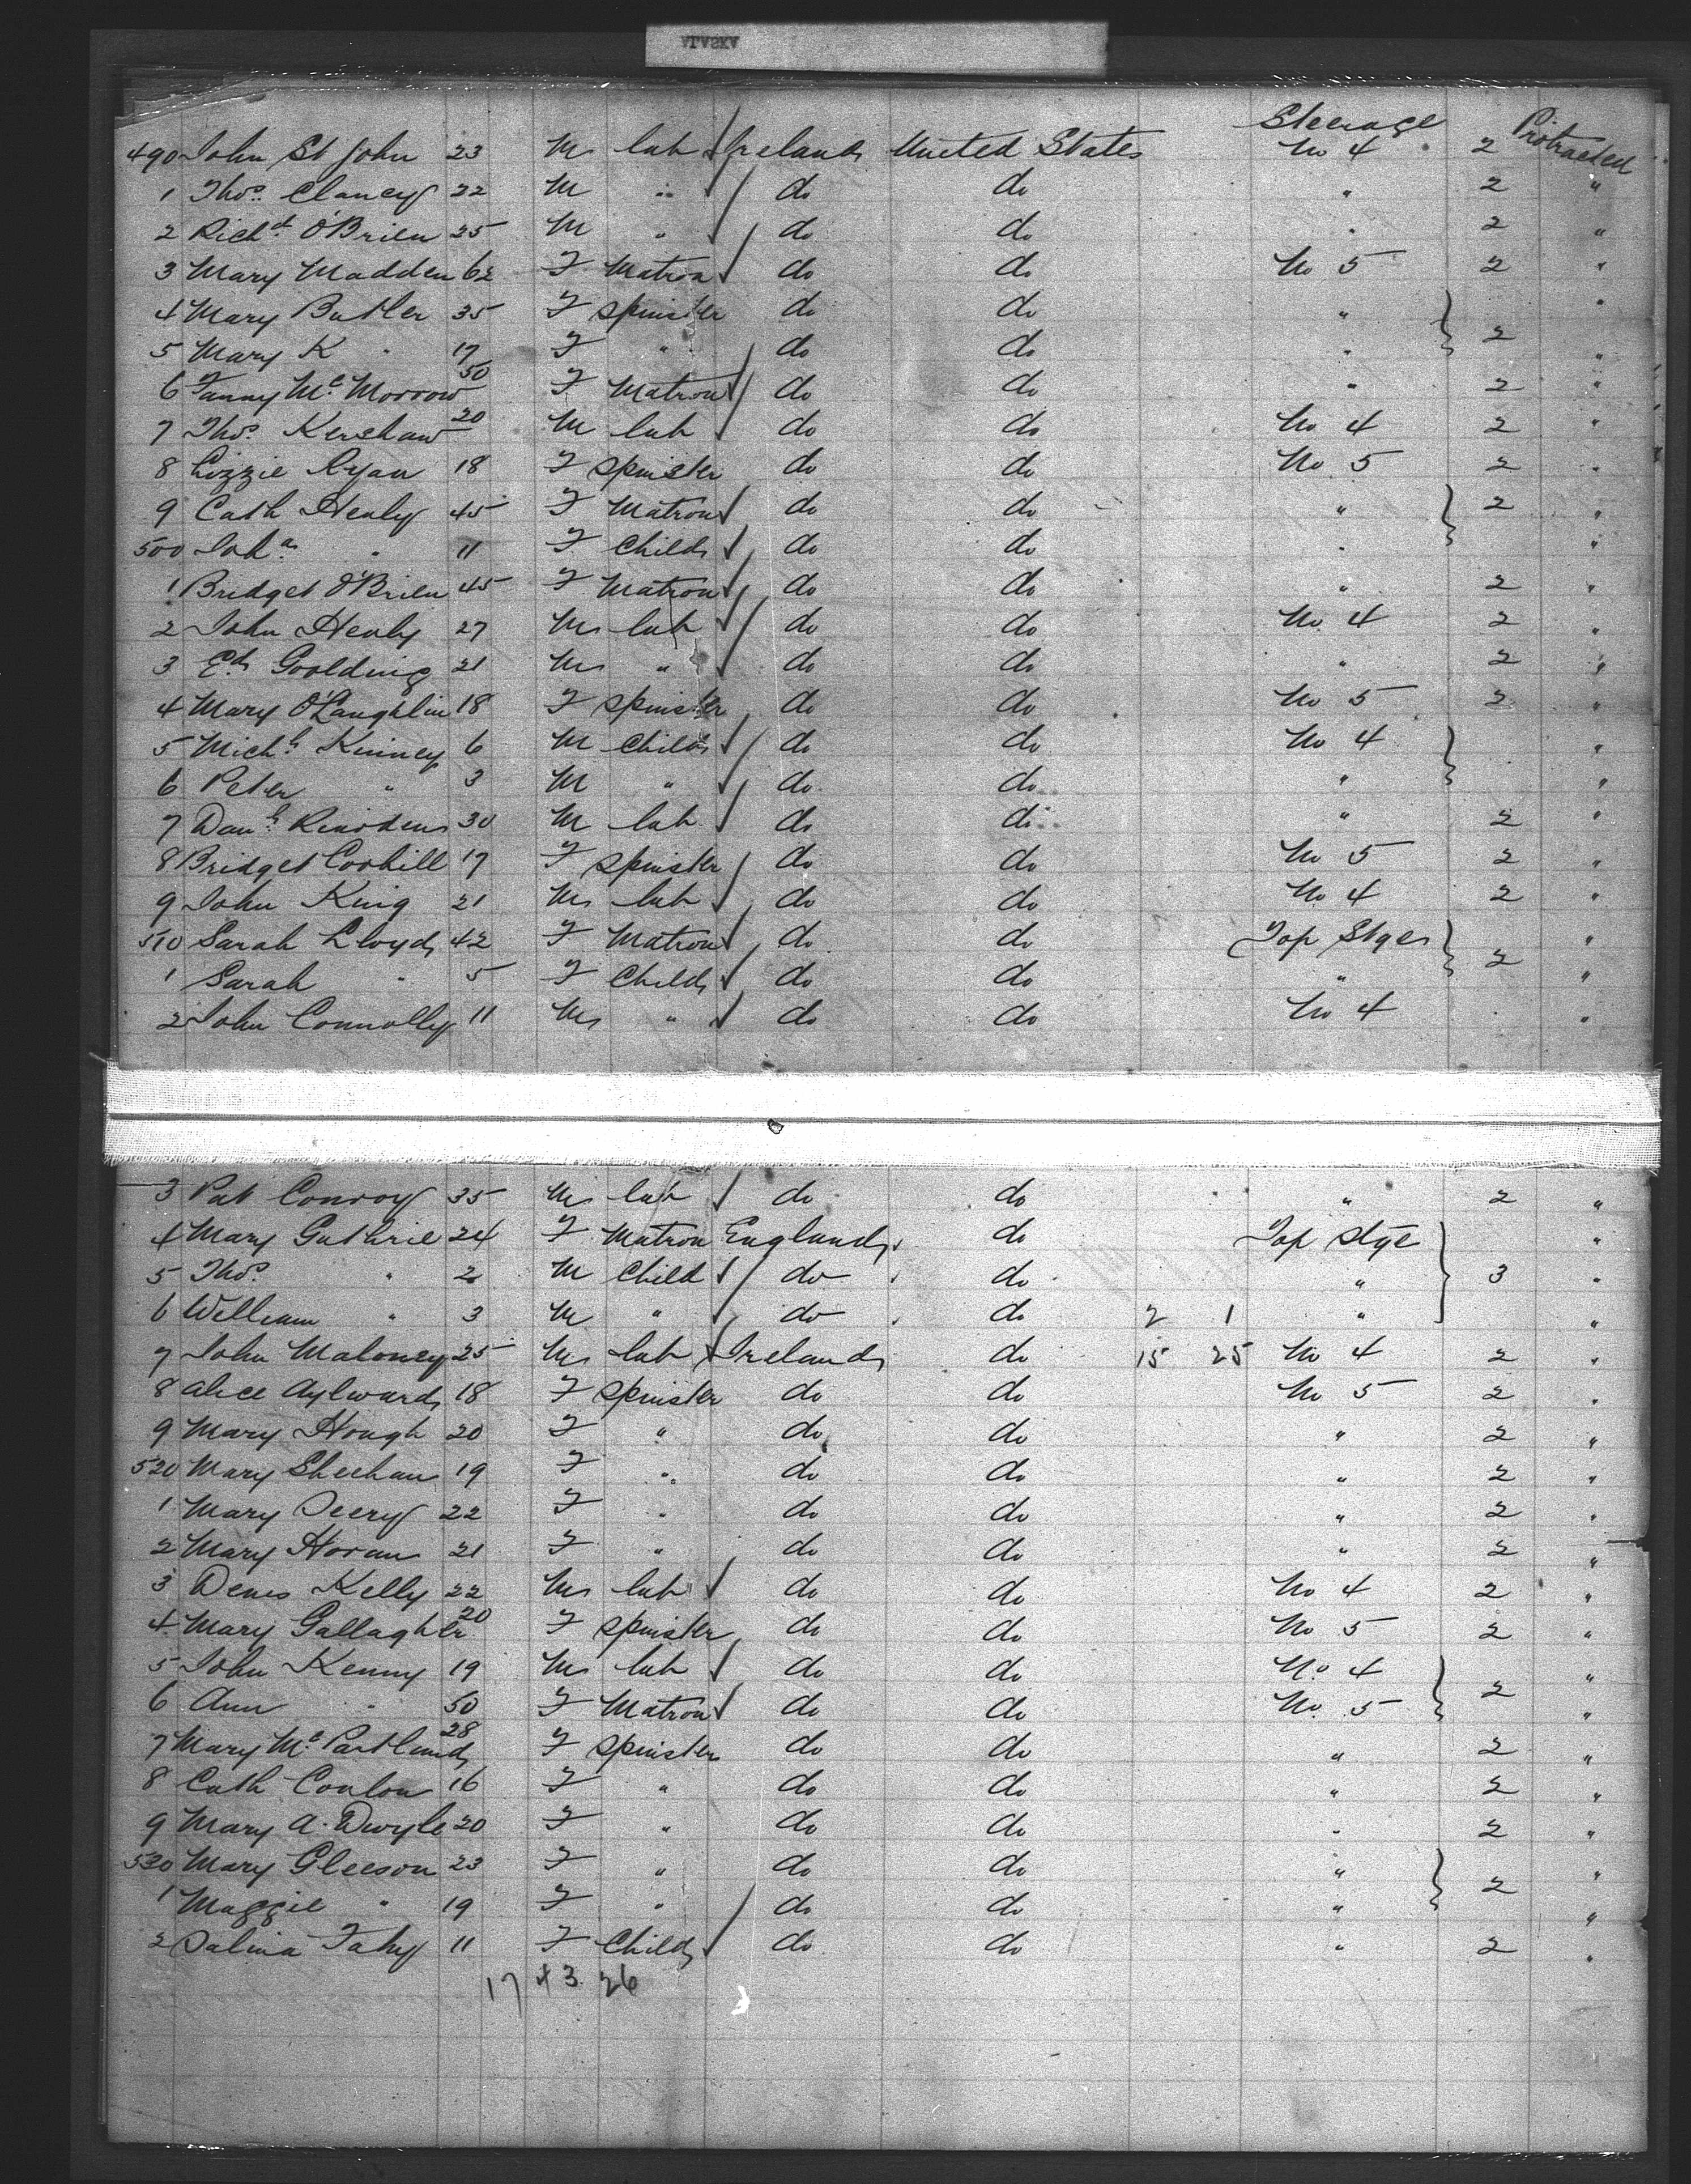 ALASKA
Steerage
490 John St John 23 M lab Ireland United States No 4 2 Protracted
1 Thos. Clancy 22 M " do do " 2 "
2 Richd O'Brien 25 M " do do " 2 "
3 Mary Madden 62 F Matron do do No 5 2 "
4 Mary Butler 35 F Spinster do do " "
5 Mary K " 17 F " do do " 2 "
6 Fanny McMorrow 50 F Matron do do " 2 "
7 Thos. Kershaw 20 M lab do do No 4 2 "
8 Lizzie Ryan 18 F Spinster do do No 5 2 "
9 Cath Healy 45 F Matron do do " 2 "
500 Joha " 11 F Child do do " "
1 Bridget O'Brien 45 F Matron do do " 2 "
2 John Healy 27 M lab do do No 4 2 "
3 Ed. Goolding 21 M " do do " 2 "
4 Mary O'Laughlin 18 F Spinster do do No 5 2 "
5 Michl Kinney 6 M Child do do No 4 "
6 Peter " 3 M " do do " "
7 Danl Riordens 30 M lab do do " 2 "
8 Bridget Corhill 17 F Spinster do do No 5 2 "
9 John King 21 M lab do do No 4 2 "
510 Sarah Lloyd 42 F Matron do do Top Stge "
1 Sarah " 5 F Child do do " 2 "
2 John Connolly 11 M " do do No 4 "
3 Pat Conroy 35 M lab do do " 2 "
4 Mary Guthrie 24 F Matron England do Top Stge "
5 Thos. " 2 M Child do do " 3 "
6 William " 3 M " do do 2 1 " "
7 John Maloney 25 M lab Ireland do 15 25 No 4 2 "
8 Alice Aylward 18 F Spinster do do No 5 2 "
9 Mary Hough 20 F " do do " 2 "
520 Mary Sheehan 19 F " do do " 2 "
1 Mary Deery 22 F " do do " 2 "
2 Mary Horan 21 F " do do " 2 "
3 Denis Kelly 22 M lab do do No 4 2 "
4 Mary Gallagher 20 F Spinster do do No 5 2 "
5 John Kenny 19 M lab do do No 4 "
6 Ann " 50 F Matron do do No 5 2 "
7 Mary McPartland 28 F Spinster do do " 2 "
8 Cath Conlon 16 F " do do " 2 "
9 Mary A. Dwyle 20 F " do do " 2 "
530 Mary Gleeson 23 F " do do " "
1 Maggie " 19 F " do do " 2 "
2 Salina Fahy 11 F Child do do " 2 "
17 43 26